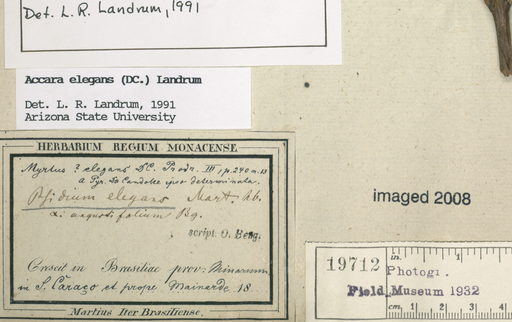 Det. L. R. Landrum, 1991
Accara elegans (DC.) Landrum
Det. L. R. Landrum, 1991
Arizona State University
HERBARIUM REGIUM MONACENSE.
Myrtus ? elegans DC. Prodr. III, p. 240 n.
a Pyr. De Candolle ipso determinata.
Psidium elegans Mart. hb.
α: angustifolium Bg.
script. O. Berg.
Crescit in Brasiliae prov. Minarum
in S. Caraço et prope 18
Martius Iter Brasiliense.
imaged 2008
19712
in.
Photogr.
Field Museum 1932
cm. 1 2 3 4